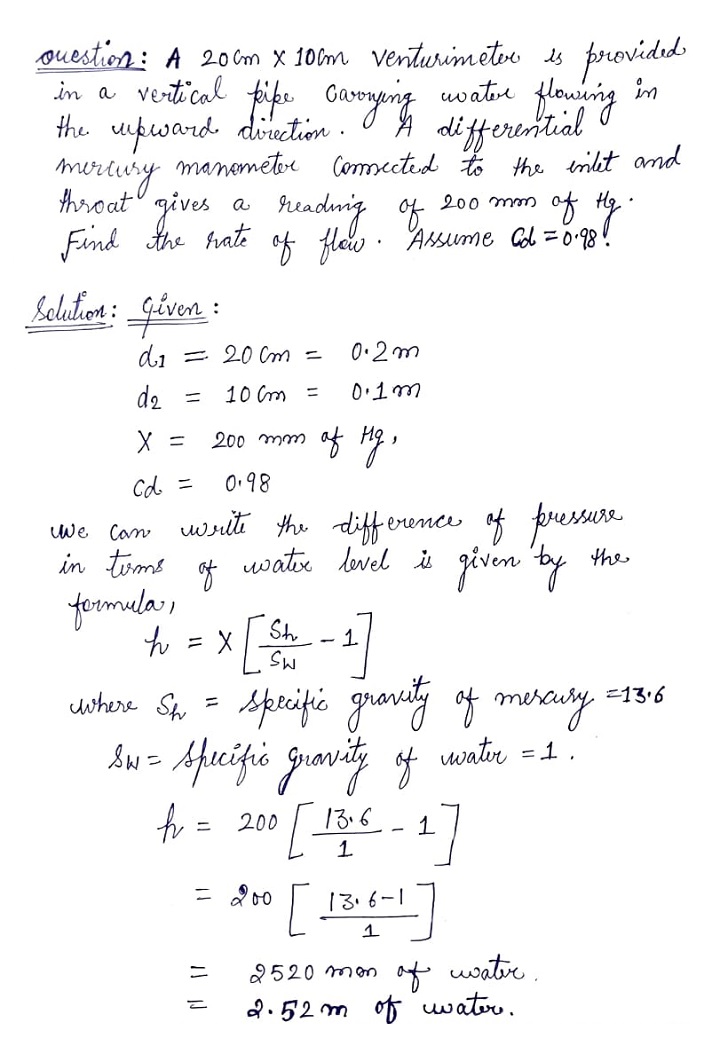 question: A 20cm X 10cm venturimeter is provided
in a vertical pipe carrying water flowing in
the upward direction. A differential
mercury manometer connected to the inlet and
throat gives a reading of 200 mm of Hg.
Find the rate of flow. Assume Cd = 0.98.
Solution: Given:
d1 = 20 cm = 0.2 m
d2 = 10 cm = 0.1 m
X = 200 mm of Hg,
Cd = 0.98
we can write the difference of pressure
in terms of water level is given by the
formula,
h = X [Sh/Sw - 1]
where Sh = specific gravity of mercury = 13.6
Sw = specific gravity of water = 1.
h = 200 [13.6/1 - 1]
= 200 [13.6-1/1]
= 2520 mm of water.
= 2.52 m of water.